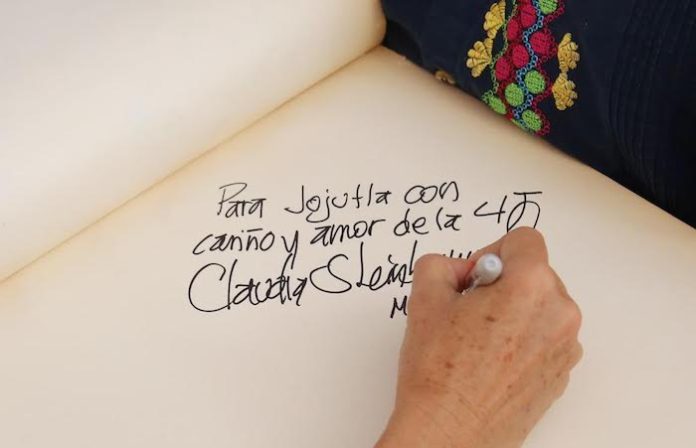 Para Jojutla con
cariño y amor de la 4T
Claudia Shein
M